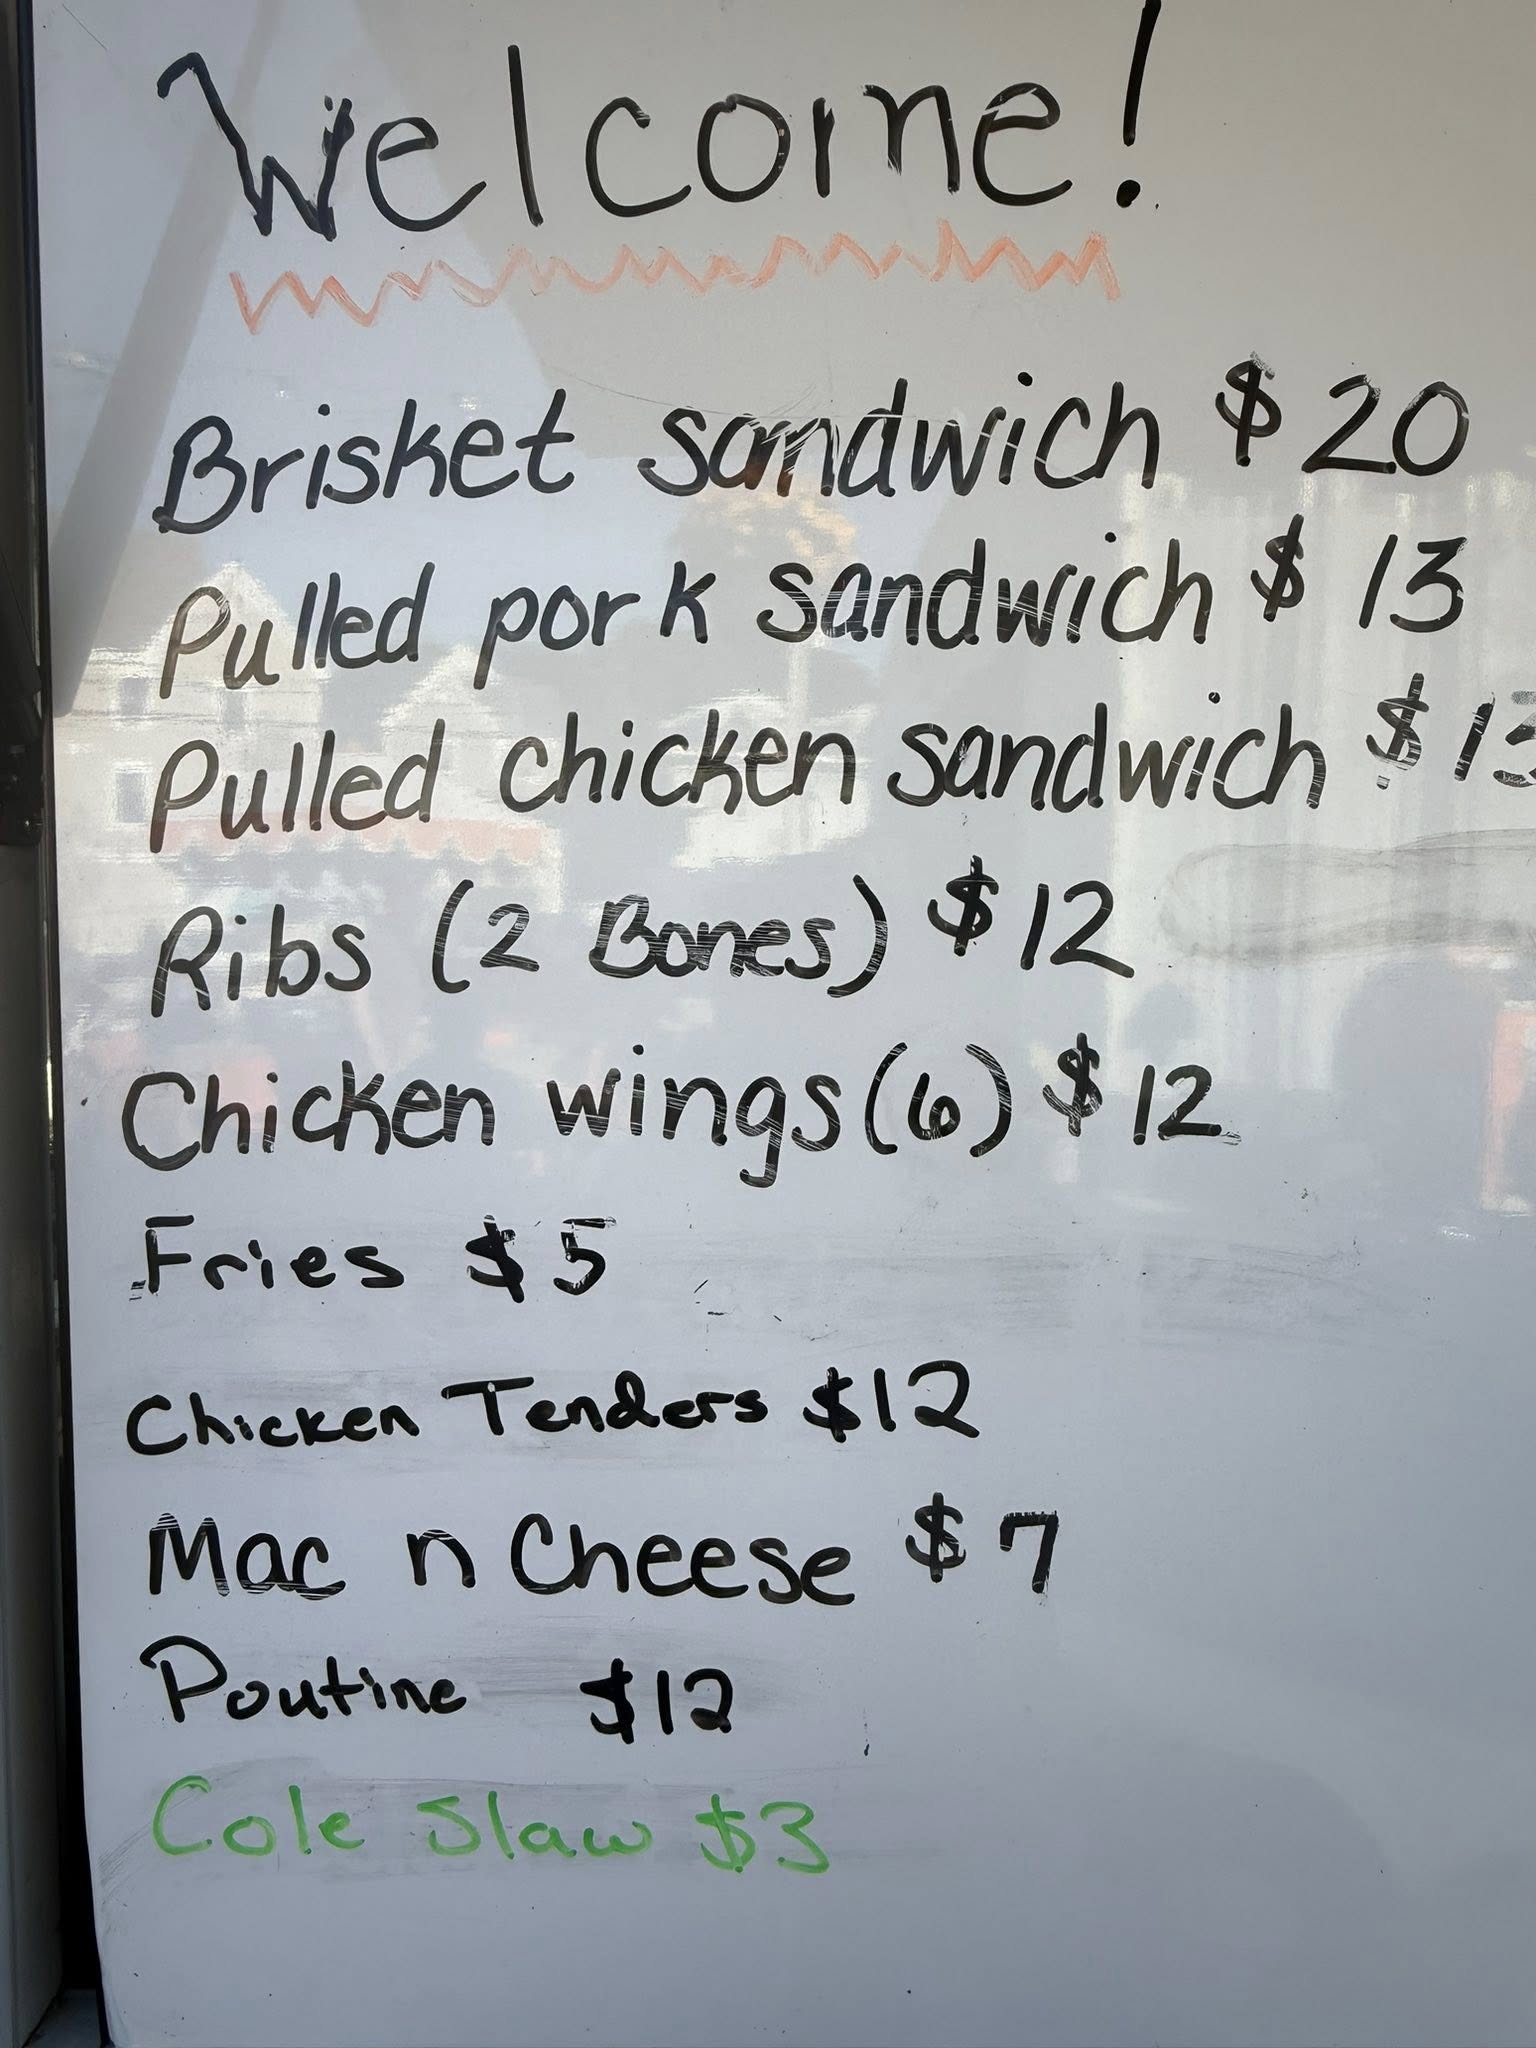 Welcome!
Brisket sandwich $20
Pulled pork sandwich $13
Pulled chicken sandwich $13
Ribs (2 Bones) $12
Chicken wings (6) $12
Fries $5
Chicken Tenders $12
Mac n Cheese $7
Poutine $12
Cole Slaw $3